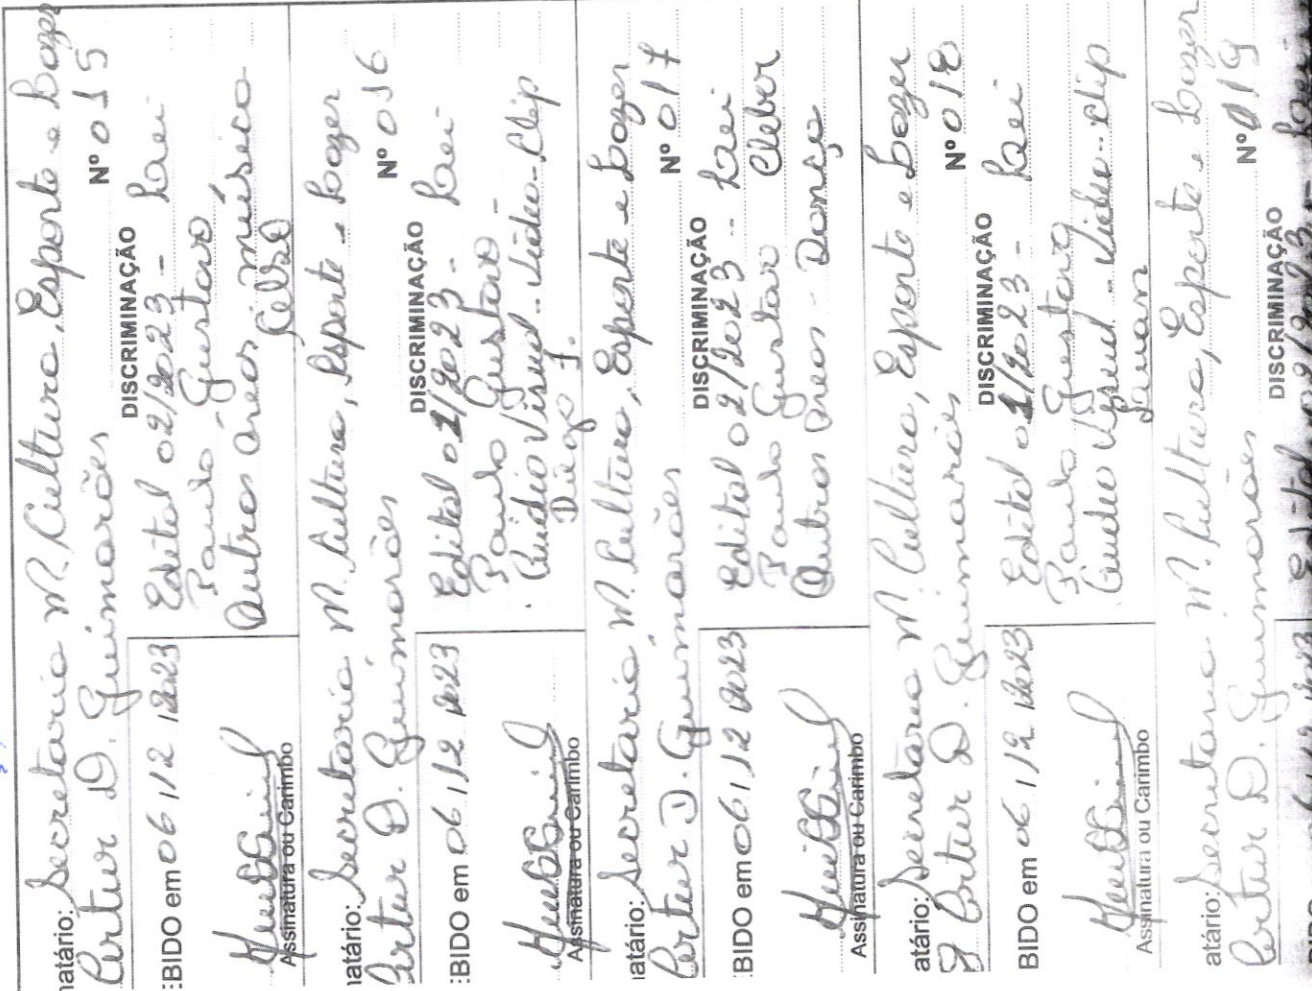 natário: Secretaria M. Cultura, Esporte e Lazer
Artur D. Guimarães Nº 015
DISCRIMINAÇÃO
EBIDO em 06/12/2023 Edital 02/2023 - Lei
Paulo Gustavo
Outras áreas, música
Celso
Assinatura ou Carimbo
natário: Secretaria M. Cultura, Esporte e Lazer
Artur D. Guimarães Nº 016
DISCRIMINAÇÃO
EBIDO em 06/12/2023 Edital 01/2023 - Lei
Paulo Gustavo -
Audio Visual - Video-Clip
Diego J.
Assinatura ou Carimbo
natário: Secretaria M. Cultura, Esporte e Lazer
Artur D. Guimarães Nº 017
DISCRIMINAÇÃO
EBIDO em 06/12/2023 Edital 02/2023 - Lei
Paulo Gustavo Cleber
Outras áreas - Dança
Assinatura ou Carimbo
atário: Secretaria M. Cultura, Esporte e Lazer
Artur D. Guimarães Nº 018
DISCRIMINAÇÃO
BIDO em 06/12/2023 Edital 01/2023 - Lei
Paulo Gustavo
Audio Visual - Video-clip
Luan
Assinatura ou Carimbo
atário: Secretaria M. Cultura, Esporte e Lazer
Artur D. Guimarães Nº 019
DISCRIMINAÇÃO
Edital 02/2023 - Lei